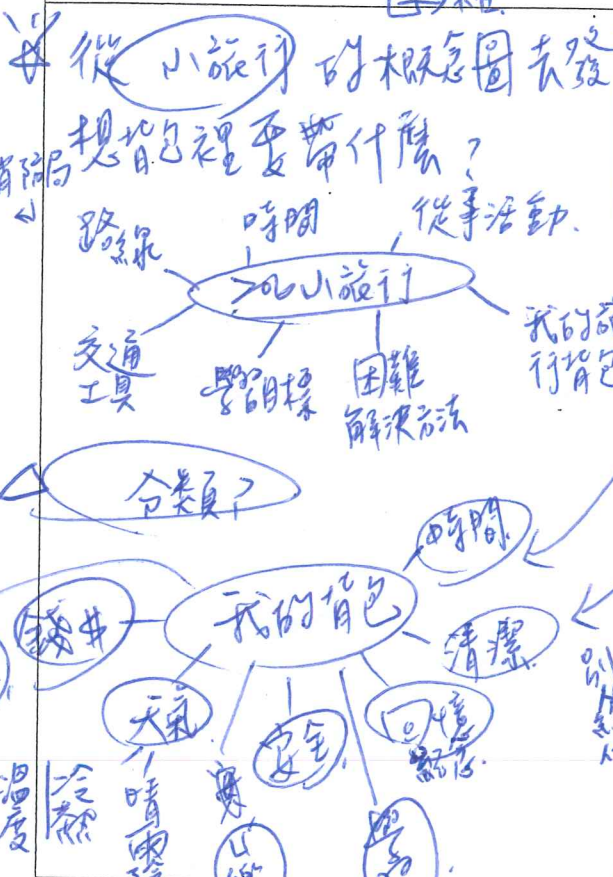 從小旅行的概念圖去發
想背包裡要帶什麼?
消防局
路線
時間
從事活動.
小旅行
交通
工具
學習目標
困難
解決方法
我的
行背包
分類?
時間
我的背包
錢$
清潔
天氣
安全
回憶
紀念
溫度
冷熱
晴雨